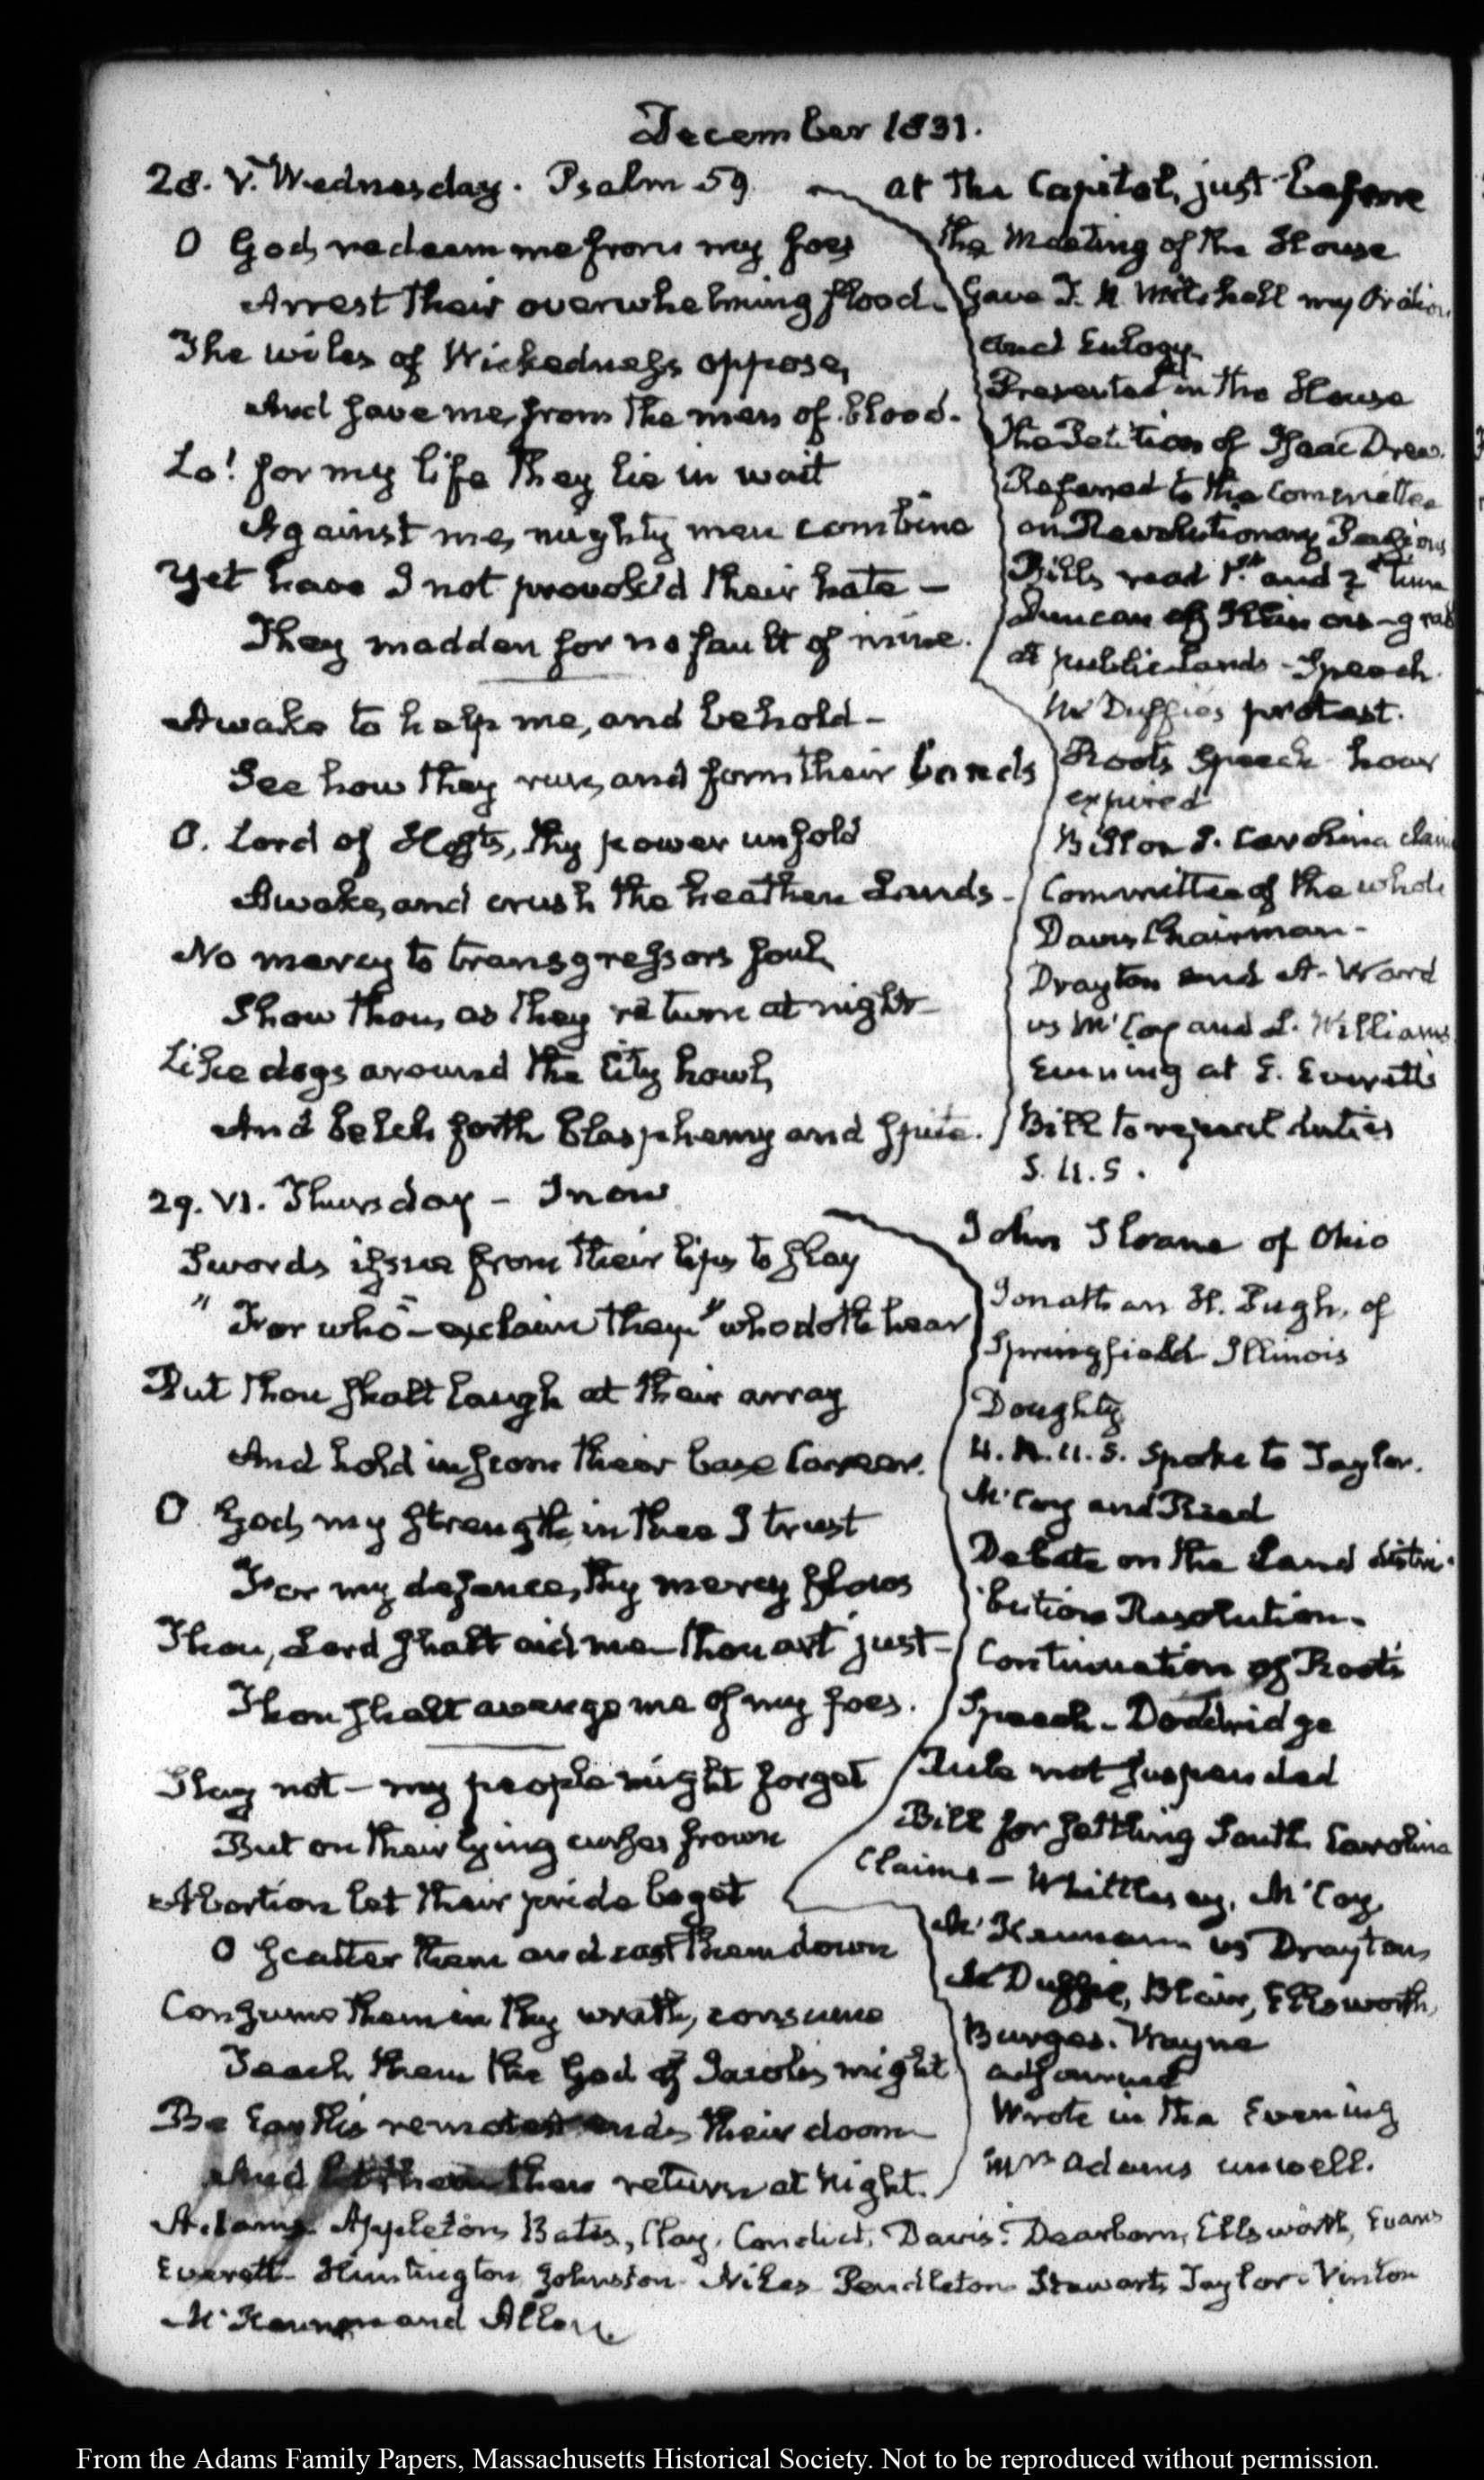 December 1831.
28. V. Wednesday. Psalm 59
O God, redeem me from my foes
Arrest their overwhelming flood.
The wiles of Wickedness oppose,
And save me, from the men of blood.
Lo! for my life they lie in wait
Against me, mighty men combine
Yet have I not provok'd their hate —
They madden for no fault of mine.
Awake to help me, and behold —
See how they run, and form their bands
O. Lord of Hosts, thy power unfold
Awake, and crush the heathen Lands —
No mercy to transgressors foul,
Show thou, as they return at night
Like dogs around the City howl,
And belch forth blasphemy and spite.
at the Capitol, just before
the Meeting of the House
Gave T. R. Mitchell my Oration
and Eulogy.
Presented in the House
the Petition of Isaac Drew.
Referred to the Committee
on Revolutionary Pensions
Bills read 1st and 2d time
Duncan of Illinois — grad
at public Lands — Speech.
McDuffie's protest.
Root's Speech hour
expired
Bill on S. Carolina claim
Committee of the whole
Davis Chairman —
Drayton and A. Ward
vs McCoy and L. Williams
Evening at E. Everett's
Bill to repeal duties
S. U. S.
29. VI. Thursday — Snow
Swords issue from their lips to slay
"For who" — exclaim they "who doth hear
But thou shalt laugh at their array
And hold in scorn their base Career.
O God, my strength, in thee I trust
For my defence, thy mercy flows
Thou, Lord shalt aid me — thou art just —
Thou shalt avenge me of my foes.
Slay not — my people might forget
But on their lying curses frown
Abortion let their pride beget
O scatter them and cast them down
Consume them in thy wrath, consume
Teach them the God of Jacob's might
Be Earth's remotest ends their doom
And let them then return at Night.
John Sloane of Ohio
Jonathan H. Pugh, of
Springfield Illinois
Doughty
H. R. U. S. Spoke to Taylor.
McCoy and Reed
Debate on the Land distri-
bution Resolution.
Continuation of Root's
Speech — Doddridge
Rule not suspended
Bill for settling South Carolina
Claims — Whittlesey, McCoy,
McKennan vs Drayton,
McDuffie, Blair, Ellsworth,
Burges. Wayne
adjourned
Wrote in the Evening
Mrs Adams unwell.
Adams. Appleton, Bates, Clay, Condict, Davis. Dearborn, Ellsworth, Evans
Everett. Huntington, Johnston. Niles. Pendleton. Stewart, Taylor. Vinton
McKennan and Allen.
From the Adams Family Papers, Massachusetts Historical Society. Not to be reproduced without permission.